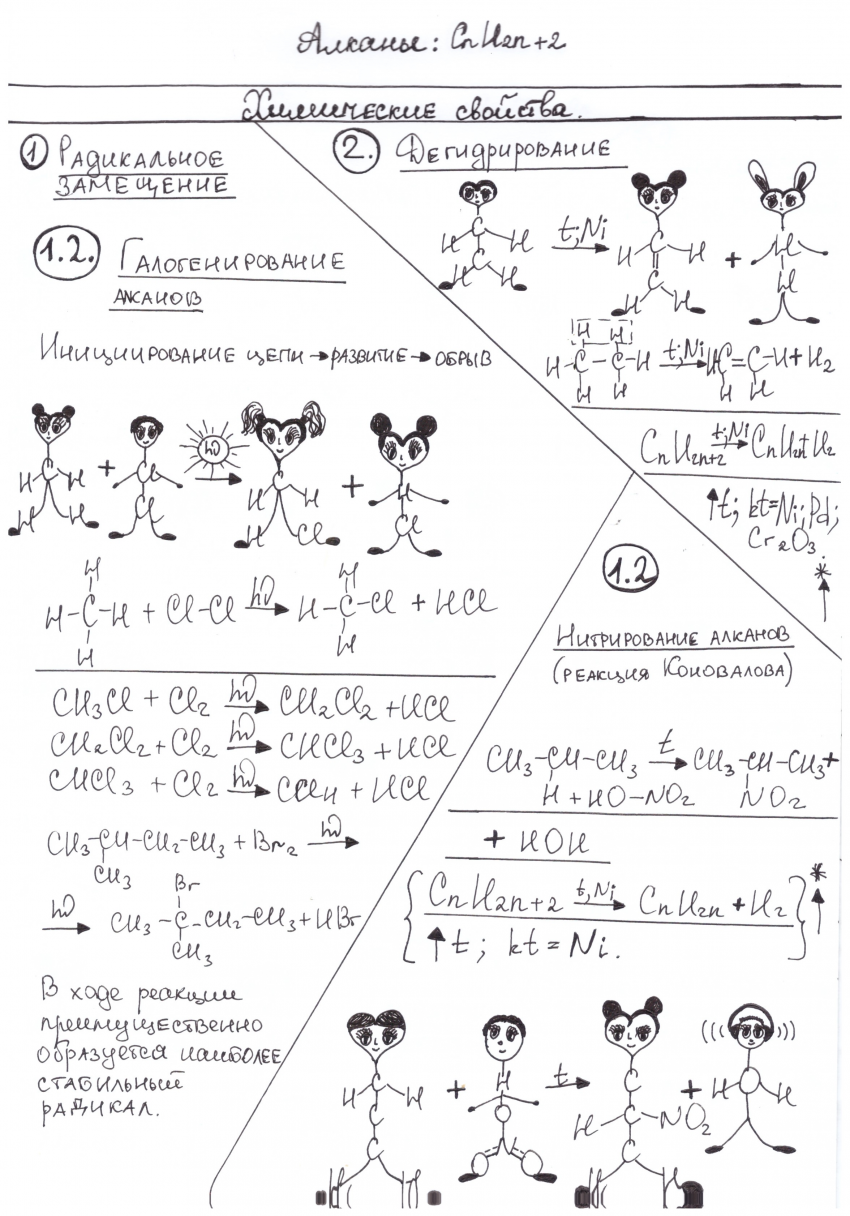 Алканы: CnH2n+2
Химические свойства.
① Радикальное
замещение
1.2. Галогенирование
алканов
Инициирование цепи → развитие → обрыв
H H + Cl hν → H H + H
H H Cl H Cl Cl
H
H-C-H + Cl-Cl hν → H-C-Cl + HCl
H H
CH3Cl + Cl2 hν → CH2Cl2 + HCl
CH2Cl2 + Cl2 hν → CHCl3 + HCl
CHCl3 + Cl2 hν → CCl4 + HCl
CH3-CH-CH2-CH3 + Br2 hν →
CH3
Br
hν → CH3-C-CH2-CH3 + HBr
CH3
В ходе реакции
преимущественно
образуется наиболее
стабильный
радикал.
2. Дегидрирование
C
H H t;Ni → H C H + H
C C H
H H H H
H H
H-C-C-H t;Ni → HC=C-H + H2
H H H H
CnH2n+2 t;Ni → CnH2n+H2
↑t; kt=Ni;Pd;
Cr2O3.
*
↑
1.2
Нитрирование алканов
(реакция Коновалова)
CH3-CH-CH3 t → CH3-CH-CH3+
H + HO-NO2 NO2
+ HOH
{CnH2n+2 t,Ni → CnH2n + H2} *
↑t; kt = Ni. ↑
((( )))
C H C
H H + O t → H C-NO2 + H O H
C N C
C O O